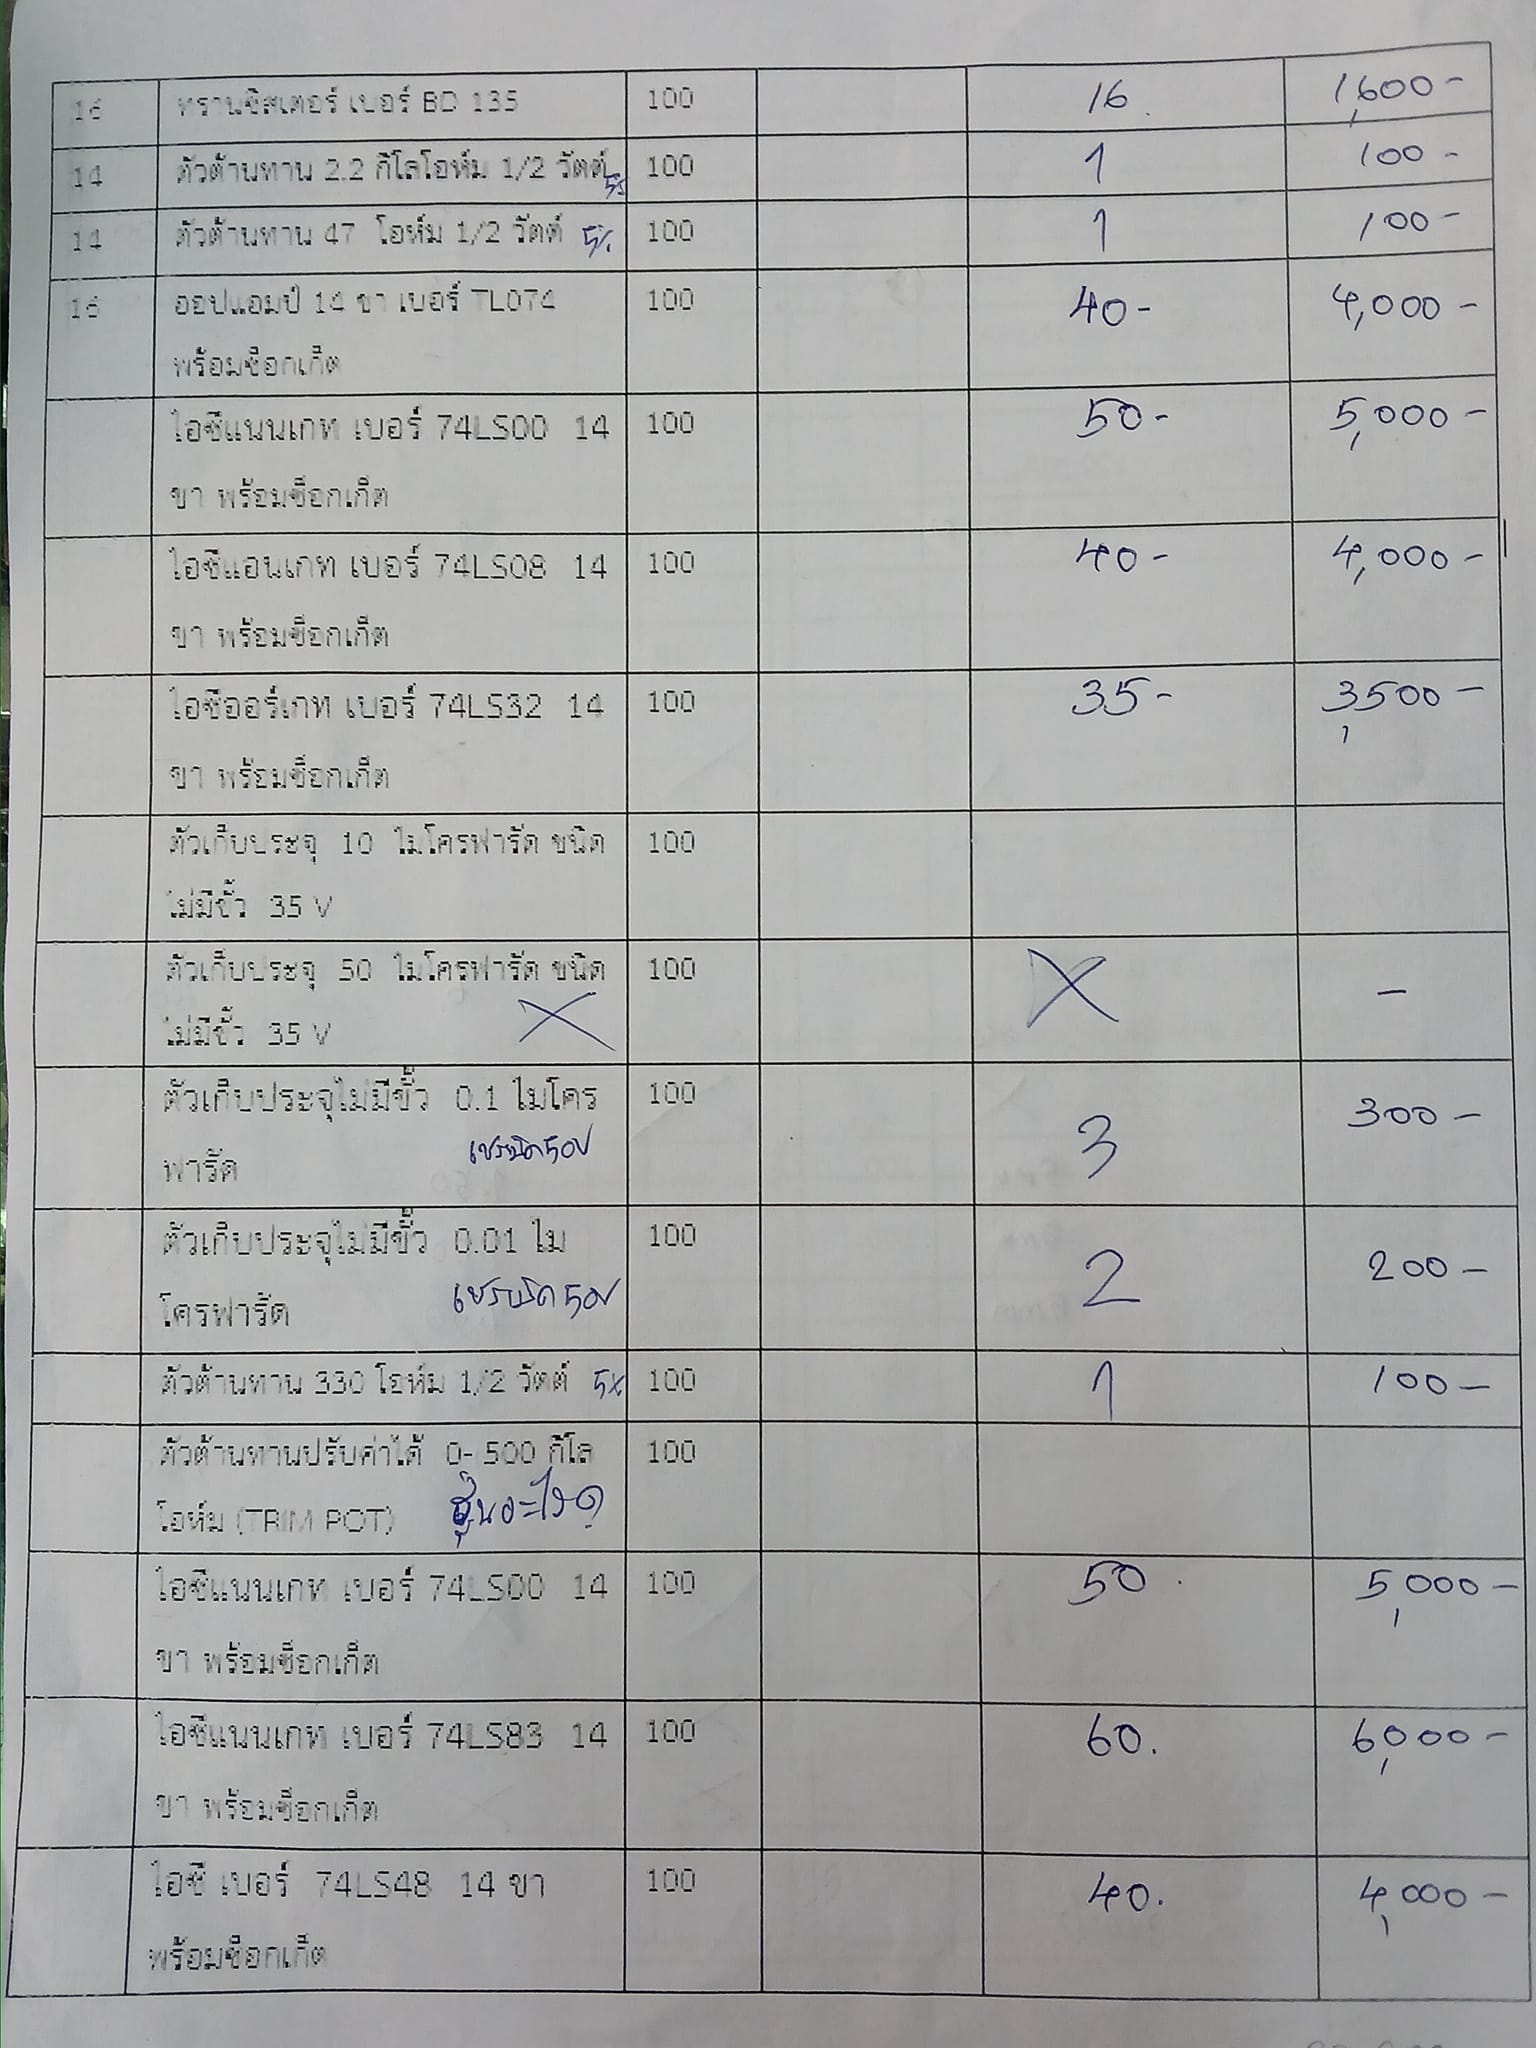 16 ทรานซิสเตอร์ เบอร์ BD 135 100 16. 1,600-
14 ตัวต้านทาน 2.2 กิโลโอห์ม 1/2 วัตต์ 5% 100 1 100-
14 ตัวต้านทาน 47 โอห์ม 1/2 วัตต์ 5% 100 1 100-
16 ออปแอมป์ 14 ขา เบอร์ TL074 100 40- 4,000-
พร้อมซ็อกเก็ต
ไอซีแนนเกท เบอร์ 74LS00 14 100 50- 5,000-
ขา พร้อมซ็อกเก็ต
ไอซีแอนเกท เบอร์ 74LS08 14 100 40- 4,000-
ขา พร้อมซ็อกเก็ต
ไอซีออร์เกท เบอร์ 74LS32 14 100 35- 3,500-
ขา พร้อมซ็อกเก็ต
ตัวเก็บประจุ 10 ไมโครฟารัด ชนิด 100
ไม่มีขั้ว 35 V
ตัวเก็บประจุ 50 ไมโครฟารัด ชนิด 100 X -
ไม่มีขั้ว 35 V X
ตัวเก็บประจุไม่มีขั้ว 0.1 ไมโคร 100 3 300-
ฟารัด เซรามิค 50V
ตัวเก็บประจุไม่มีขั้ว 0.01 ไม 100 2 200-
โครฟารัด เซรามิค 50V
ตัวต้านทาน 330 โอห์ม 1/2 วัตต์ 5% 100 1 100-
ตัวต้านทานปรับค่าได้ 0-500 กิโล 100
โอห์ม (TRIM POT)
ไอซีแนนเกท เบอร์ 74LS00 14 100 50. 5,000-
ขา พร้อมซ็อกเก็ต
ไอซีแนนเกท เบอร์ 74LS83 14 100 60. 6,000-
ขา พร้อมซ็อกเก็ต
ไอซี เบอร์ 74LS48 14 ขา 100 40. 4,000-
พร้อมซ็อกเก็ต